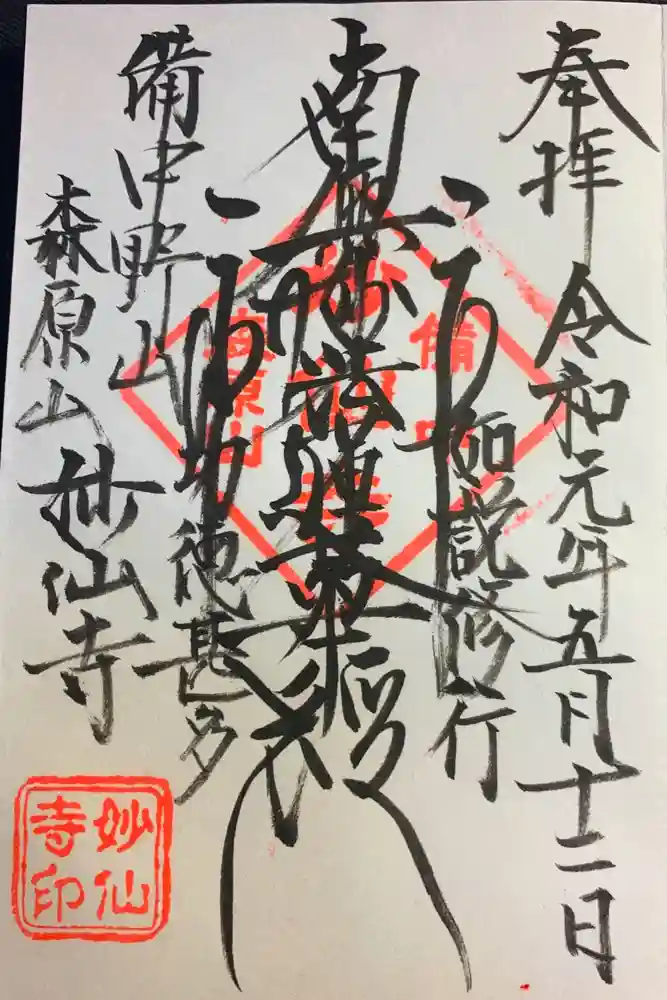 奉拝 令和元年五月十二日
如説修行
南無妙法蓮華経
功徳甚多
備中野山
森原山 妙仙寺
備中
森原山
妙仙寺印